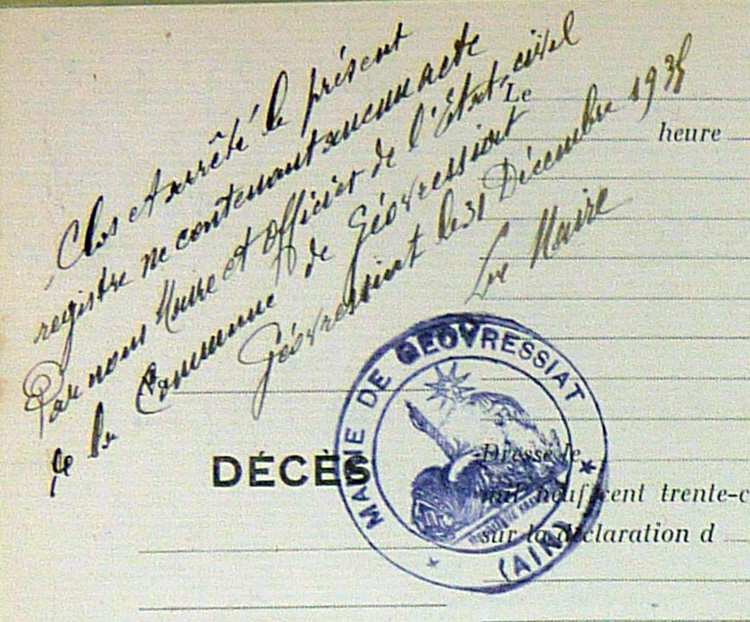 Clos et arrêté le présent
registre ne contenant aucun acte
Par nous Maire et Officier de l'Etat civil
de la Commune de Géovressiat
Géovressiat le 31 Décembre 193
Le Maire
Le
heure
MAIRIE DE GEOVRESSIAT
(AIN)
DÉCÈS
Dressé le
mil neuf cent trente-c
sur la déclaration d